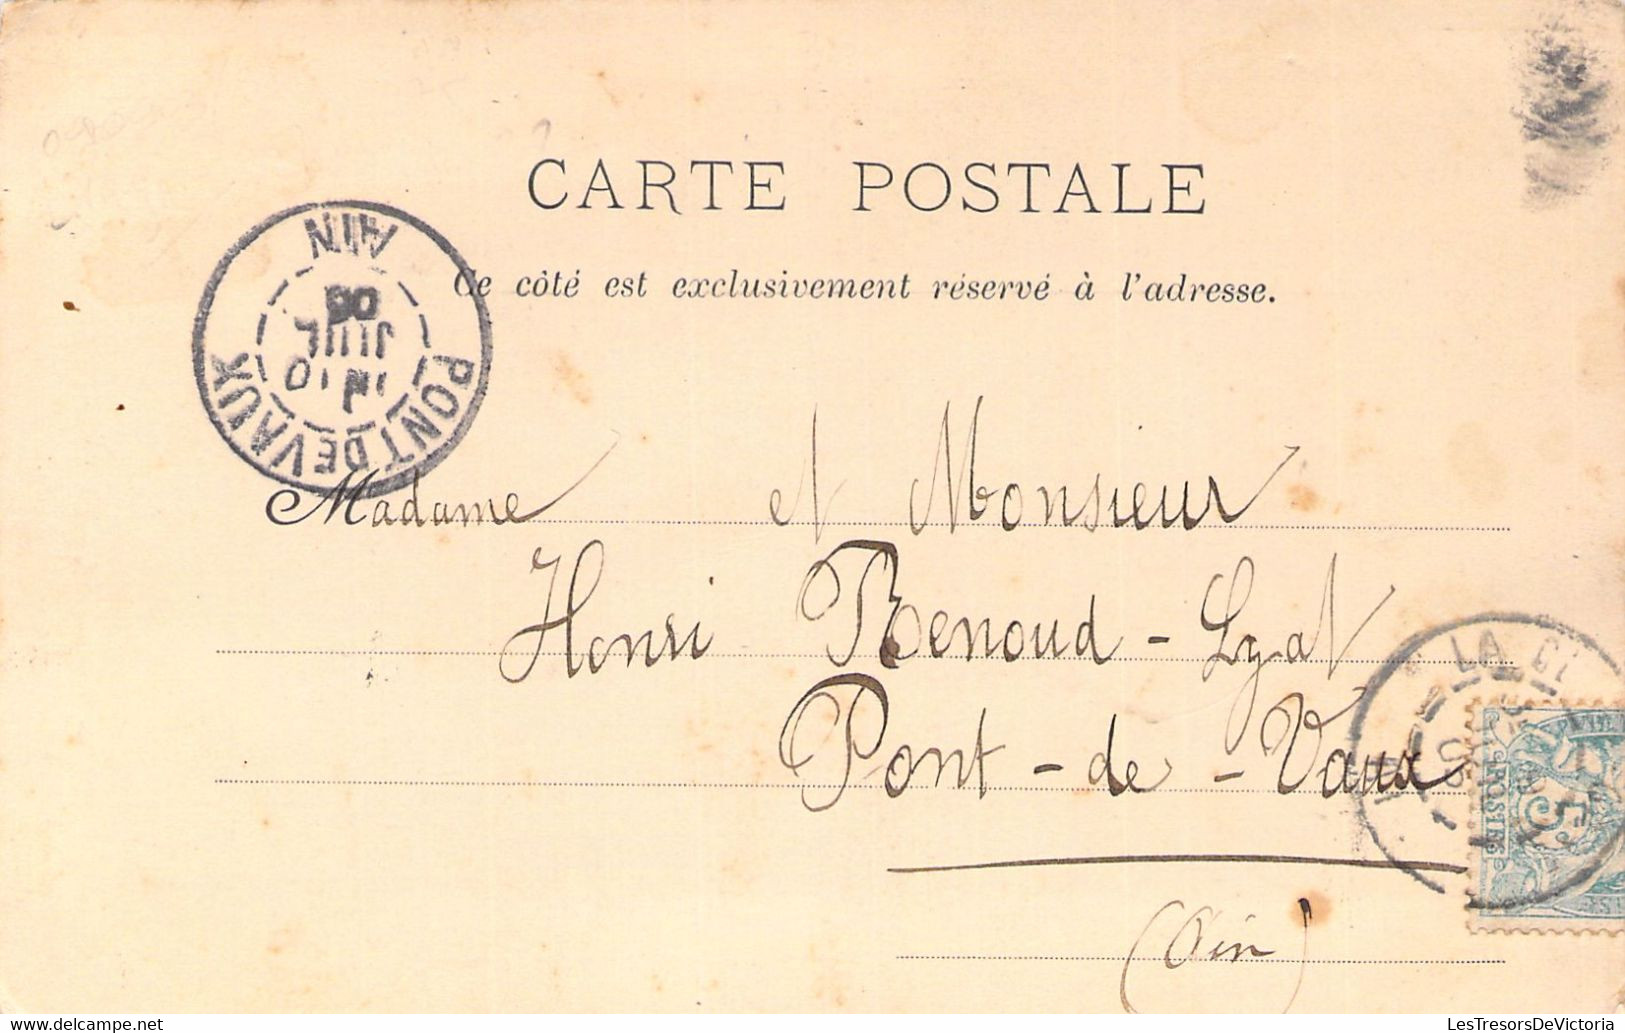 CARTE POSTALE
Ce côté est exclusivement réservé à l'adresse.
AIN
06
JUIL
10
PONT DE VAUX
Madame et Monsieur
Henri Renoud-Lyat
Pont-de-Vaux
(Ain)
LA
POSTES
5
LesTresorsDeVictoria
www.delcampe.net